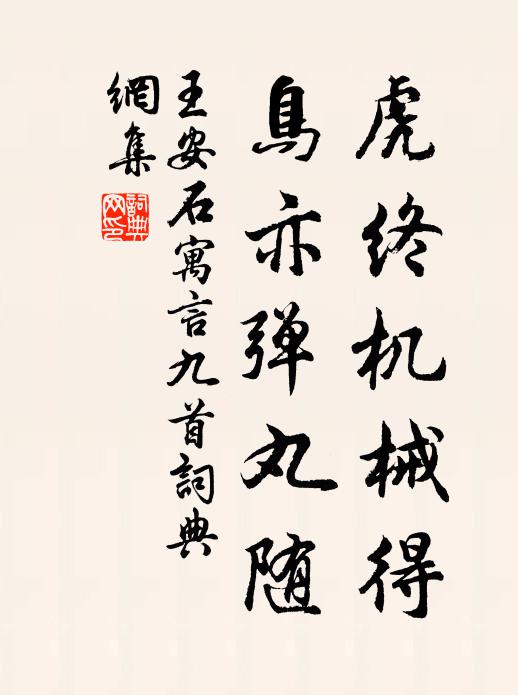 虎终机械得
鳥亦弹丸随
王安石寓言九首詞典
網集
詞典
网印